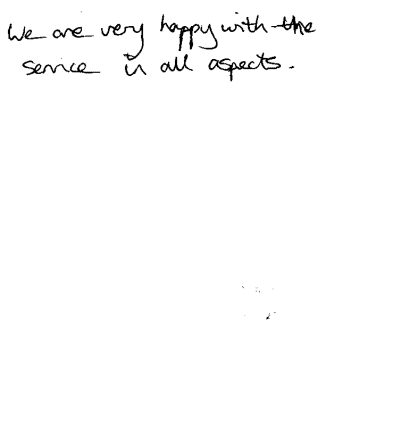 We are very happy with the
service in all aspects.